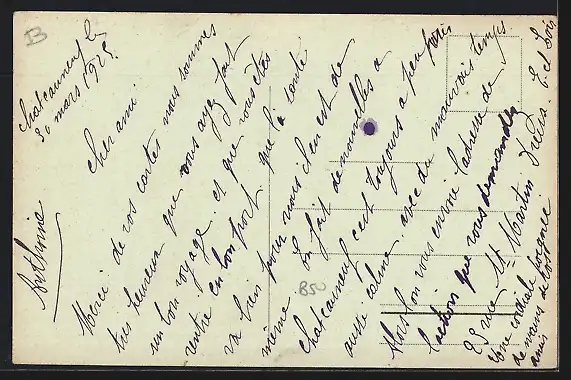 B
Chateauneuf le
30 mars 1925
cher ami
Merci de vos cartes nous sommes
tres heureux que vous ayez fait
un bon voyage. et que vous êtes
rentré en bon port que la santé
va bien pour nous cher est de
même En fait de nouvelles a
chateauneuf c'est toujours a peu près
aussi calme avec du mauvais temps
Alors on vous envoie l'adresse de
cachous que vous demandez
rue St Martin Dreux. E et Loir
Une cordiale poignée
de mains de vos
amis
B50